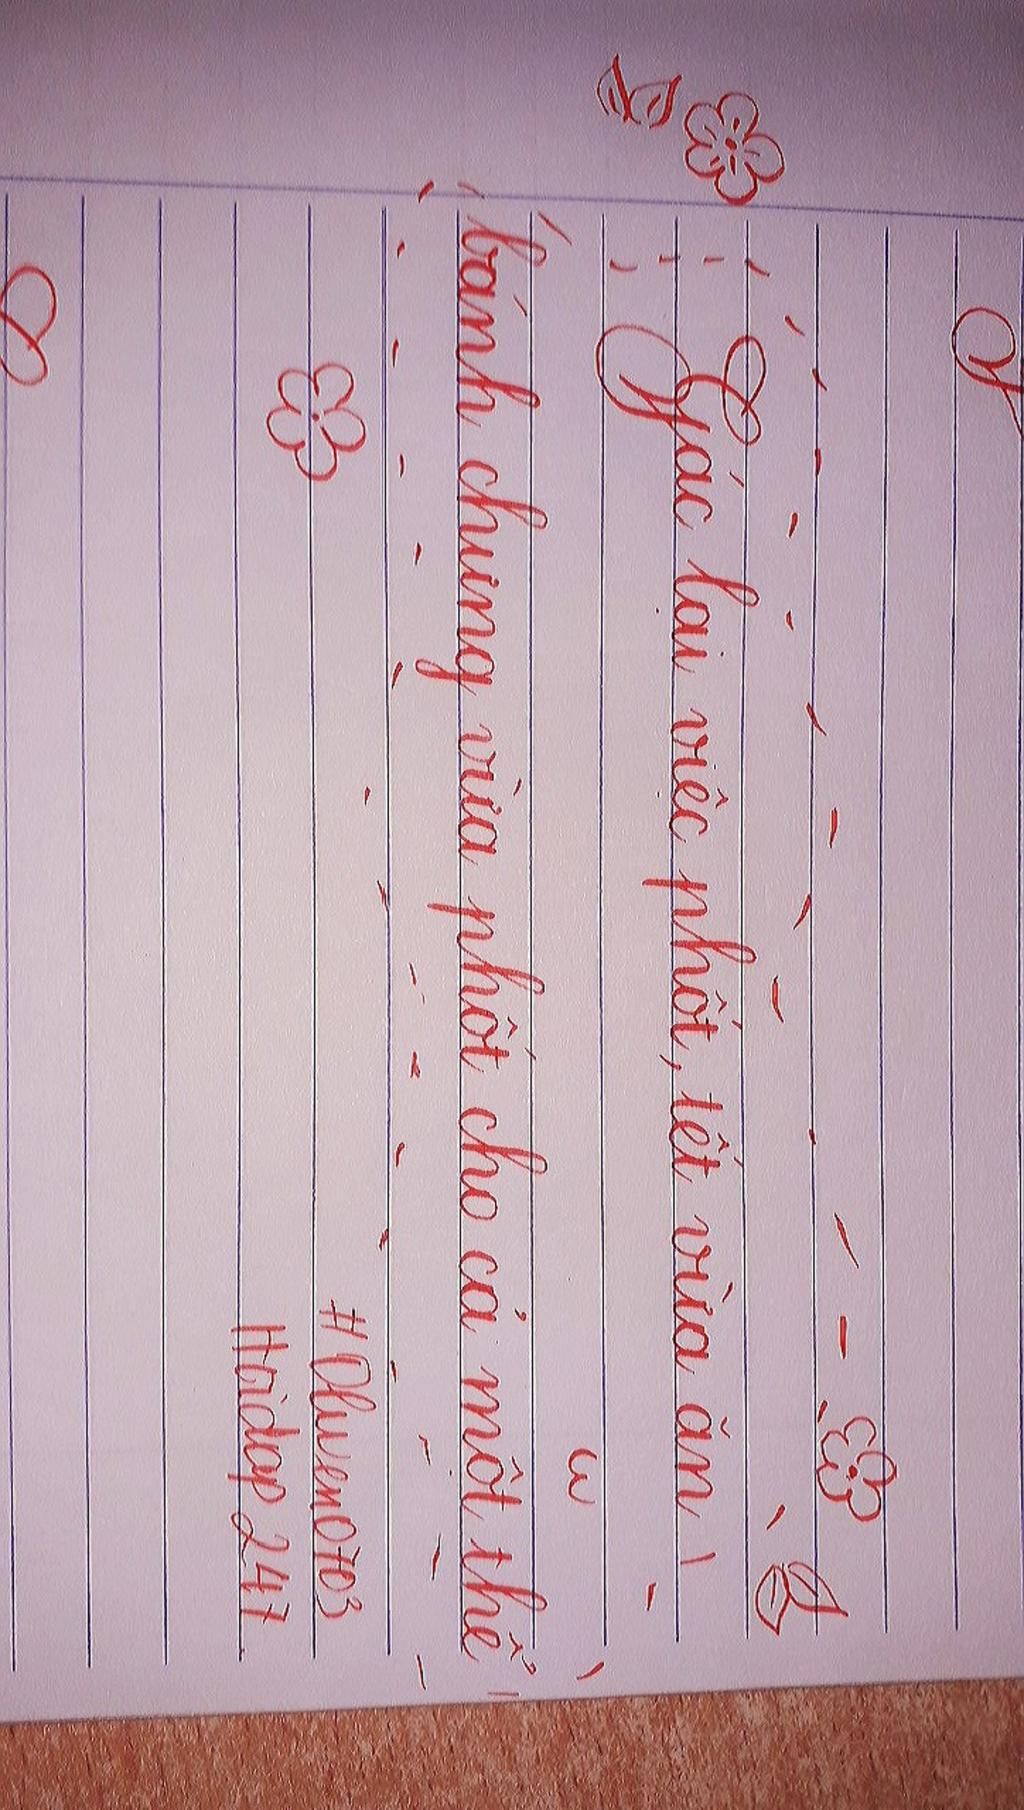 Gác lại việc phốt, tết vừa ăn
bánh chưng vừa phốt cho cả một thể
#Olwen0703
Hoidap 247